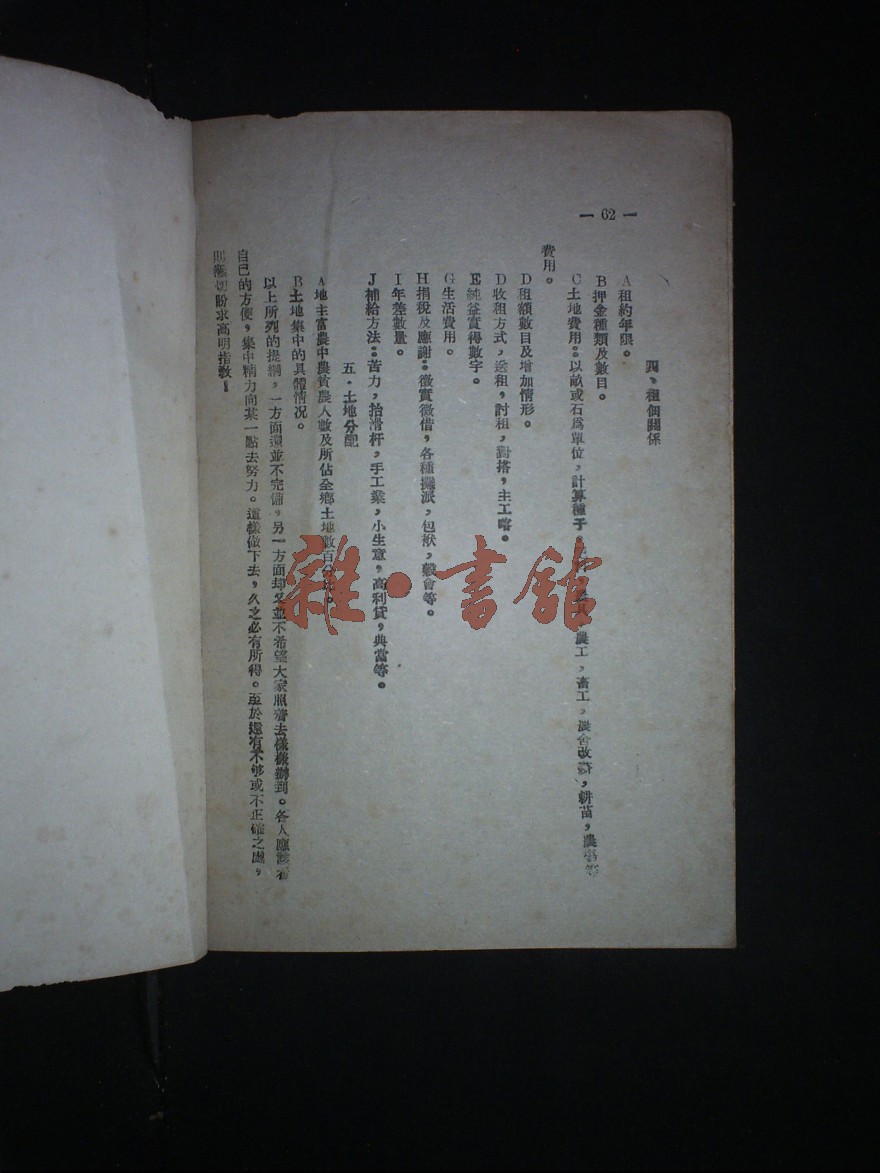 — 62 —
四、租佃關係
A租約年限。
B押金種類及數目。
C土地費用：以畝或石爲單位，計算種子，農工，畜工，耕苗，農學等
費用。
D租額數目及增加情形。
D收租方式，送租，討租，對搭，主工喀。
E純益實得數字。
G生活費用。
H捐稅及應謝：徵實徵借，各種攤派，包袱，穀會等。
I年差數量。
J補給方法：苦力，抬滑杆，手工業，小生意，高利貸，典當等。
五．土地分配
A地主富農中農貧農人數及所佔全鄉土地數百分比。
B土地集中的具體情況。
以上所列的提綱，一方面還並不完備，另一方面却又並不希望大家照着去樣樣辦到。各人應該看
自己的方便，集中精力向某一點去努力。這樣做下去，久之必有所得。至於還有不够或不正確之處，
則懇切盼求高明指教！
雜·書館